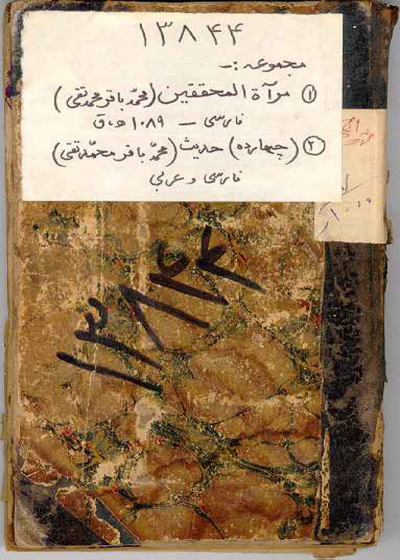 ۱۳۸۴۴
مجموعه :-
① مرآة المحققین (محمد باقر محمد تقی)
فارسی — ۱۰۸۹ ه.ق
② (چهارده) حدیث (محمد باقر محمد تقی)
فارسی و عربی
۱۳۸۴۴